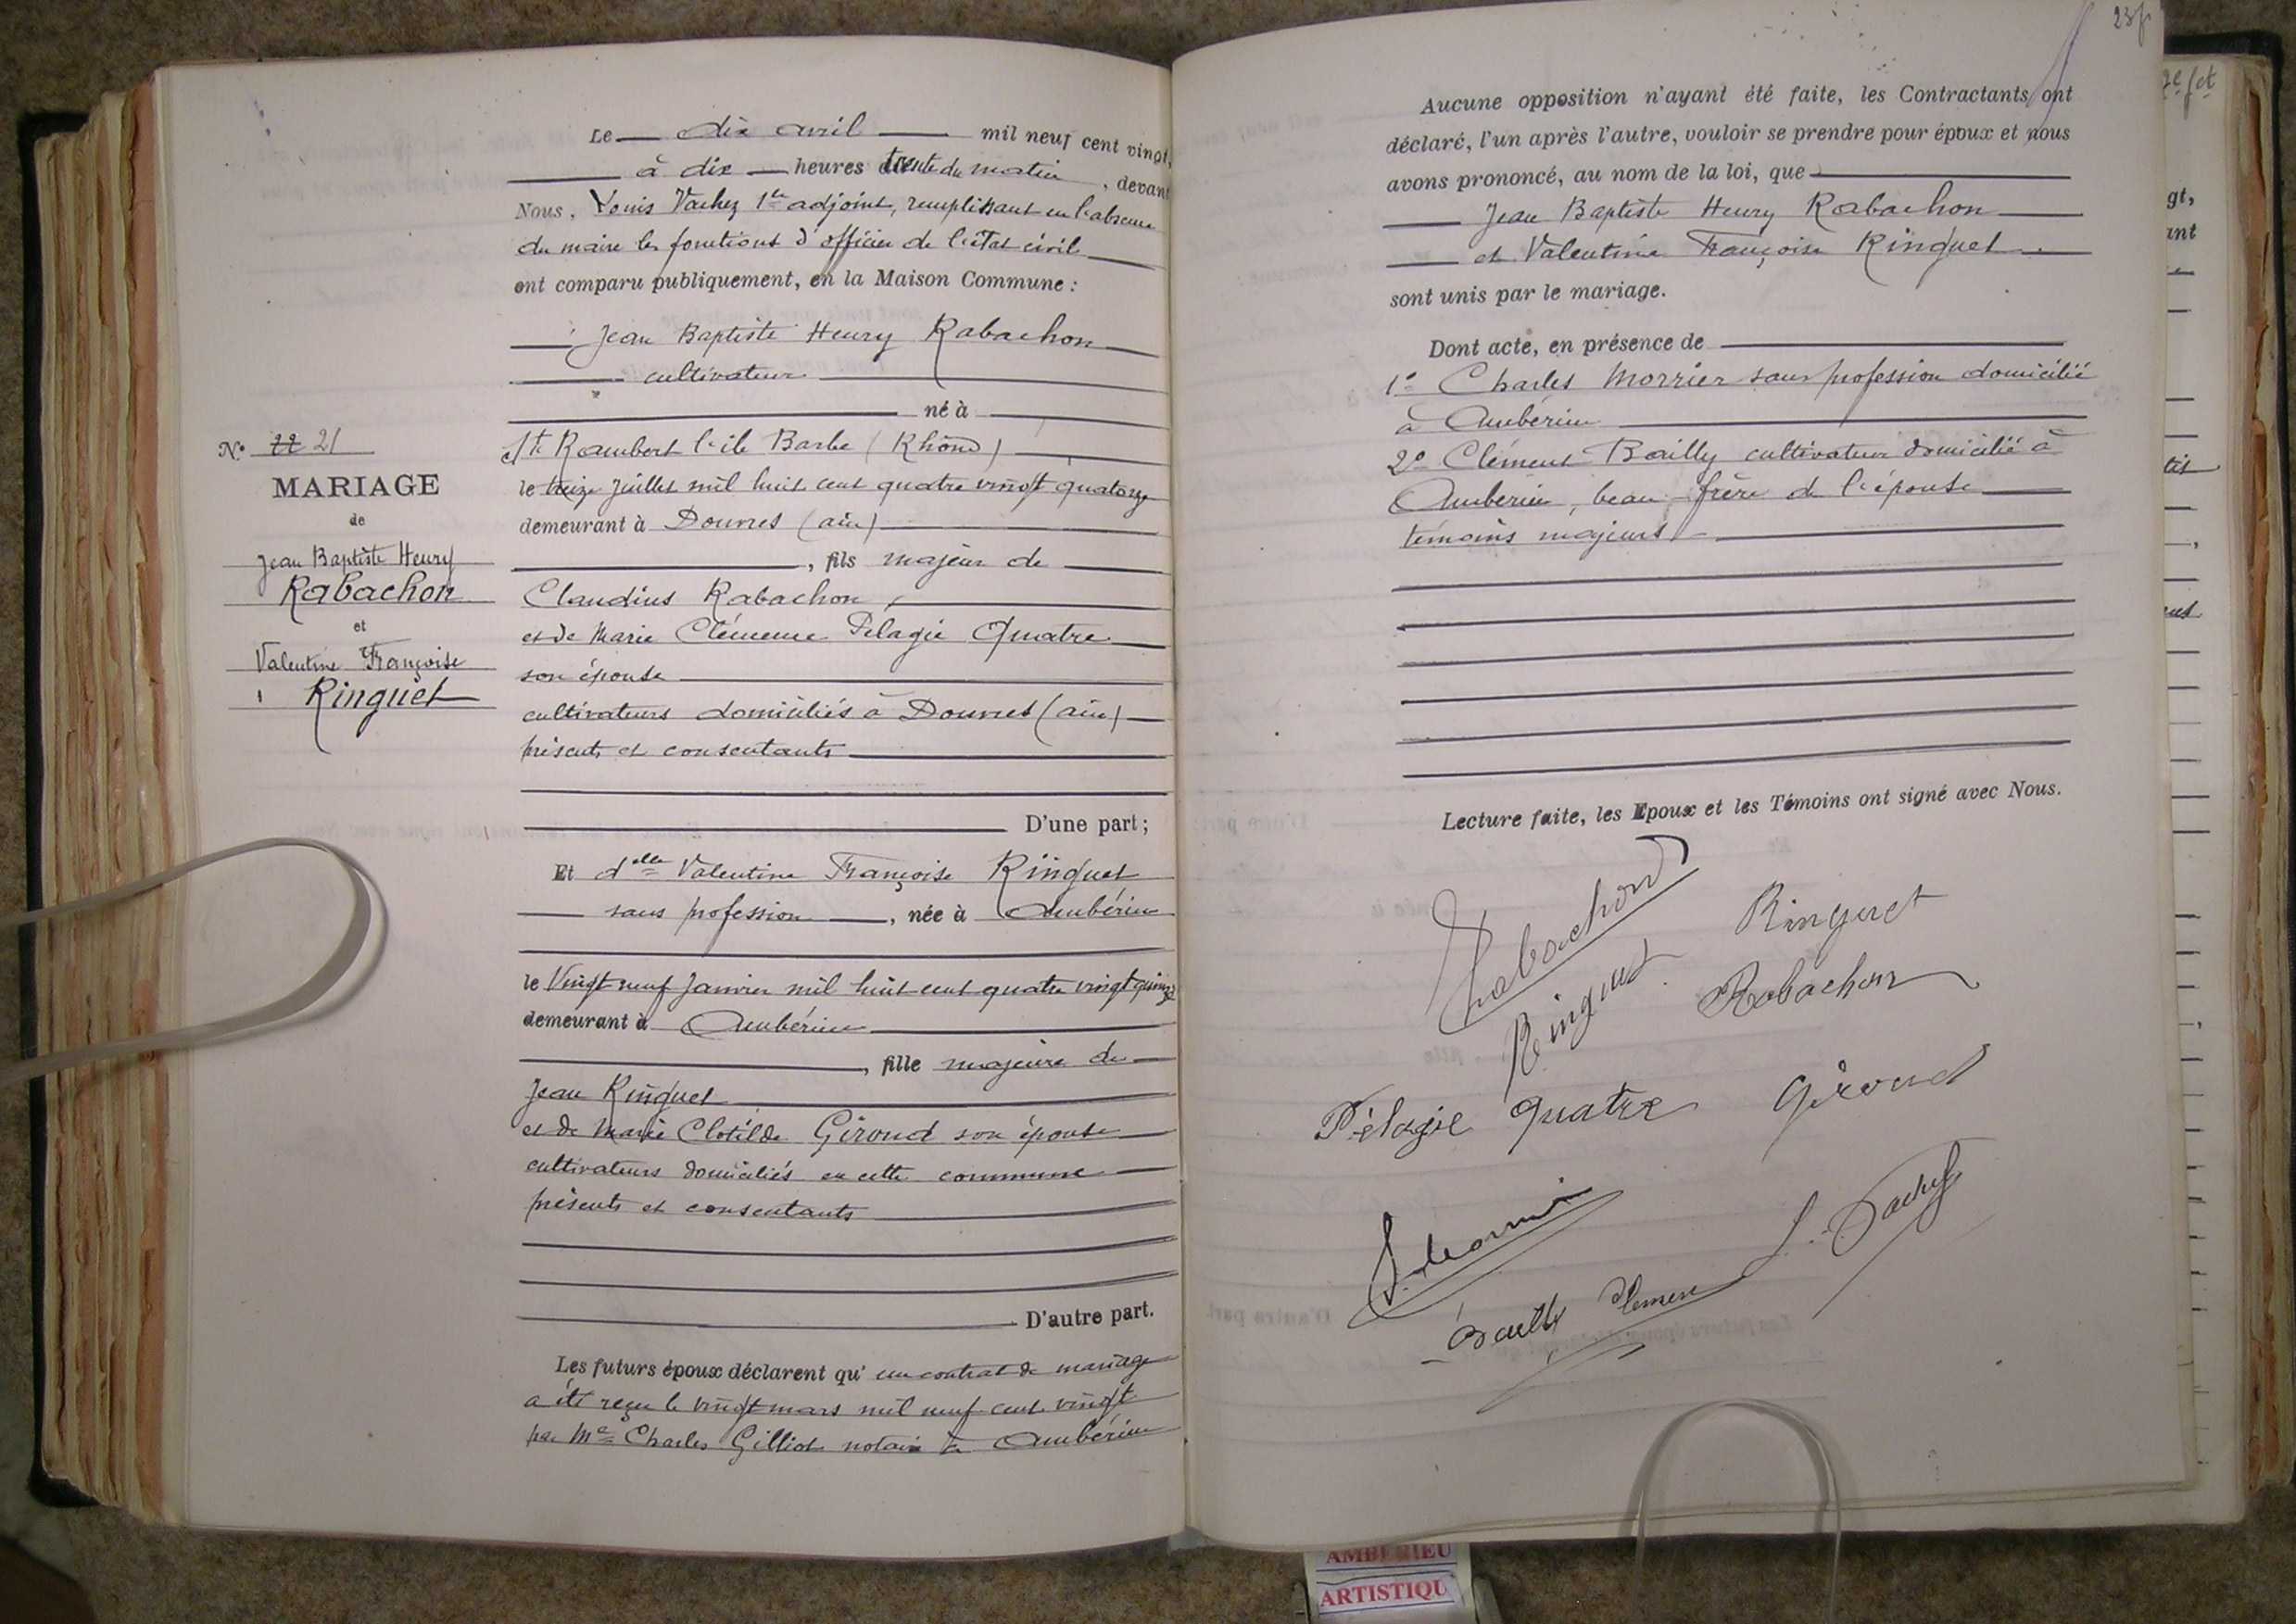 Le dix avril mil neuf cent vingt,
à dix heures trente du matin, devant
Nous, Louis Vachez 1er adjoint, remplissant en l'absence
du maire les fonctions d'officier de l'état civil
ont comparu publiquement, en la Maison Commune :
Jean Baptiste Henry Rabachon
cultivateur
né à
St Rambert l'ile Barbe (Rhône)
le treize juillet mil huit cent quatre vingt quatorze
demeurant à Douvres (ain)
, fils majeur de
Claudius Rabachon,
et de Marie Clémence Pelagie Quatre
son épouse
cultivateurs domiciliés à Douvres (ain)
présents et consentants
D'une part ;
Et delle Valentine Françoise Ringuet
sans profession, née à Ambérieu
le Vingt neuf Janvier mil huit cent quatre vingt quinze
demeurant à Ambérieu
, fille majeure de
Jean Ringuet
et de Marie Clotilde Giroud son épouse
cultivateurs domiciliés en cette commune
présents et consentants
D'autre part.
Les futurs époux déclarent qu'un contrat de mariage
a été reçu le vingt mars mil neuf cent vingt
par Me Charles Gilliot notaire à Ambérieu
No 22 21
MARIAGE
de
Jean Baptiste Henry
Rabachon
et
Valentine Françoise
Ringuet
Aucune opposition n'ayant été faite, les Contractants ont
déclaré, l'un après l'autre, vouloir se prendre pour époux et nous
avons prononcé, au nom de la loi, que
Jean Baptiste Henry Rabachon
et Valentine Françoise Ringuet
sont unis par le mariage.
Dont acte, en présence de
1° Charles Morrier sans profession domicilié
à Ambérieu
2° Clément Bailly cultivateur domicilié à
Ambérieu, beau-frère de l'épouse
témoins majeurs
Lecture faite, les Epoux et les Témoins ont signé avec Nous.
Rabachon
Ringuet
Ringuet
Rabachon
Pélagie Quatre
Giroud
L. Vachez
Bailly Clément
gt,
ant
AMBERIEU
ARTISTIQU